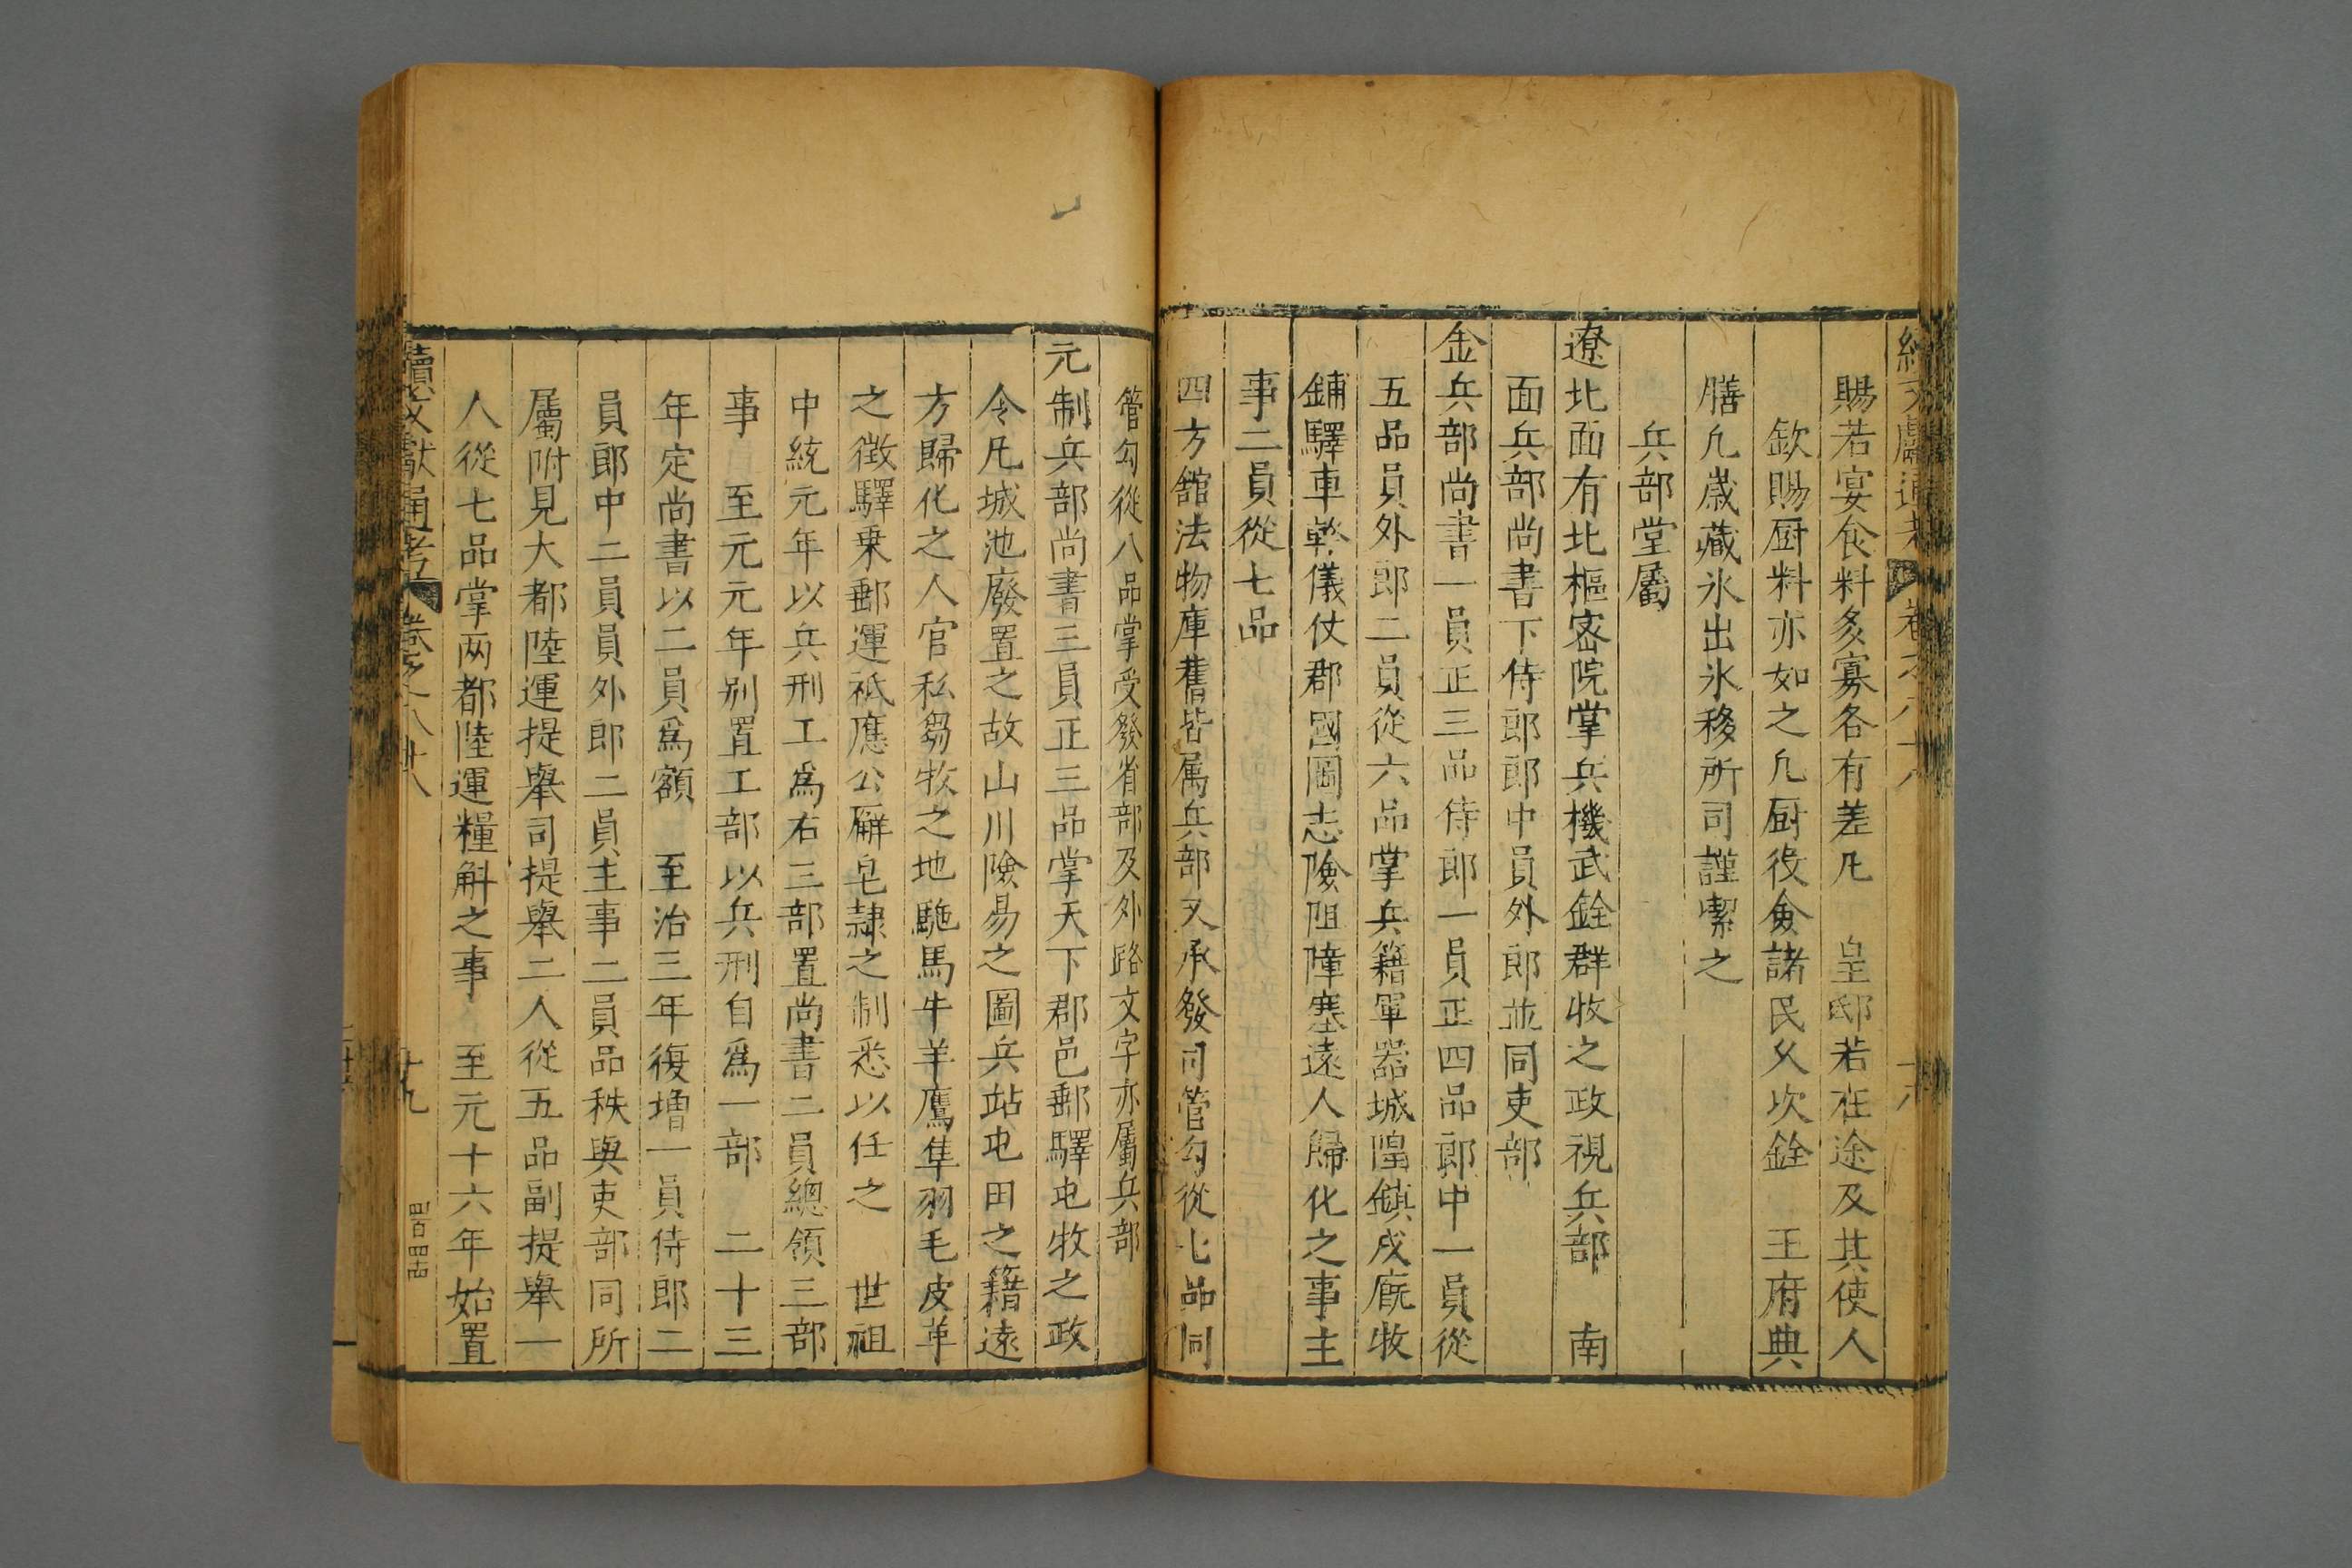 賜若宴食料多寡各有差凡　皇邸若在途及其使人
欽賜厨料亦如之凡厨役僉諸民父次銓　王府典
膳凡歲藏氷出氷移所司謹潔之
兵部堂屬
遼北面有北樞密院掌兵機武銓群牧之政視兵部　南
面兵部尚書下侍郎郎中員外郎並同吏部
金兵部尚書一員正三品侍郎一員正四品郎中一員從
五品員外郎二員從六品掌兵籍軍器城隍鎮戍廐牧
鋪驛車輅儀仗郡國圖志險阻障塞遠人歸化之事主
事二員從七品
四方館法物庫舊皆属兵部又承發司管勾從七品同
管勾從八品掌受發省部及外路文字亦屬兵部
元制兵部尚書三員正三品掌天下郡邑郵驛屯牧之政
令凡城池廢置之故山川險易之圖兵站屯田之籍遠
方歸化之人官私芻牧之地駞馬牛羊鷹隼羽毛皮革
之徵驛乗郵運祗應公廨皂隷之制悉以任之　世祖
中統元年以兵刑工為右三部置尚書二員總領三部
事　至元元年别置工部以兵刑自為一部　二十三
年定尚書以二員為額　至治三年復増一員侍郎二
員郎中二員員外郎二員主事二員品秩與吏部同所
屬附見大都陸運提舉司提舉二人從五品副提舉一
人從七品掌两都陸運糧斛之事　至元十六年始置
續文獻通考　卷之八十八　十九